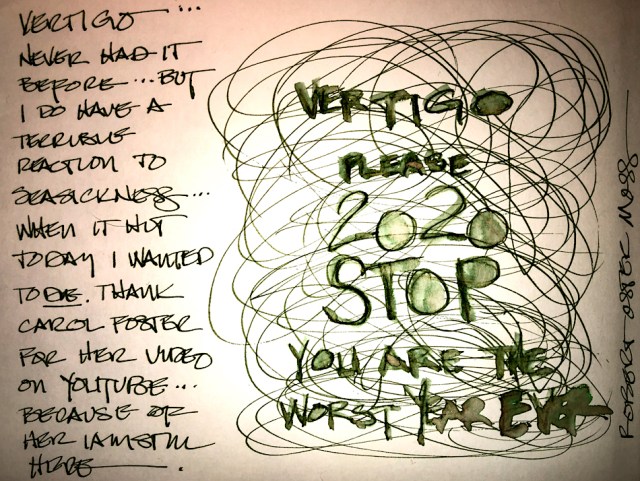 VERTIGO...
NEVER HAD IT
BEFORE...BUT
I DO HAVE A
TERRIBLE
REACTION TO
SEASICKNESS...
WHEN IT HIT
TODAY I WANTED
TO DIE. THANK
CAROL FOSTER
FOR HER VIDEO
ON YOUTUBE...
BECAUSE OF
HER I AM STILL
HERE.
VERTIGO
PLEASE
2020
STOP
YOU ARE THE
WORST YEAR EVER
ROBERT OSTER